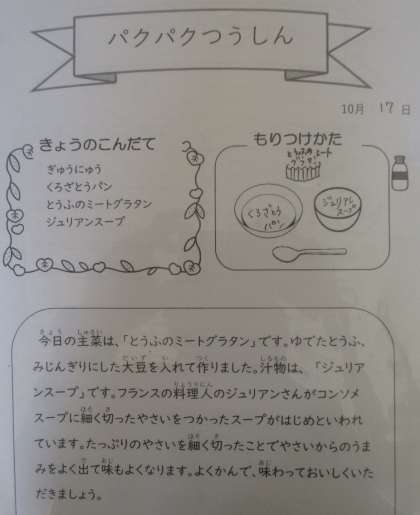 パクパクつうしん
10月 17日
きょうのこんだて
ぎゅうにゅう
くろざとうパン
とうふのミートグラタン
ジュリアンスープ
もりつけかた
とうふのミート
グラタン
くろざとう
パン
ジュリアン
スープ
今日の主菜は、「とうふのミートグラタン」です。ゆでたとうふ、
みじんぎりにした大豆を入れて作りました。汁物は、「ジュリア
ンスープ」です。フランスの料理人のジュリアンさんがコンソメ
スープに細く切ったやさいをつかったスープがはじめといわれ
ています。たっぷりのやさいを細く切ったことでやさいからのうま
みをよく出て味もよくなります。よくかんで、味わっておいしくいた
だきましょう。